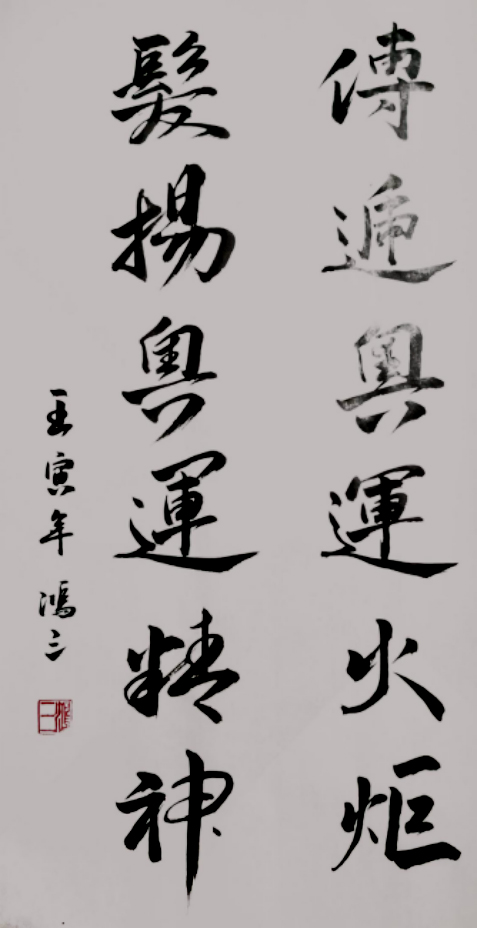 傳遞奧運火炬
髮揚奧運精神
壬寅年 鴻三